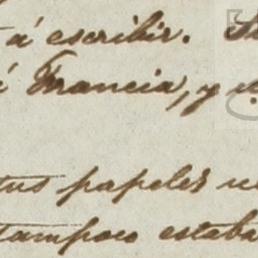 á escribir.
Francia, y
papeles
tampoco estaba